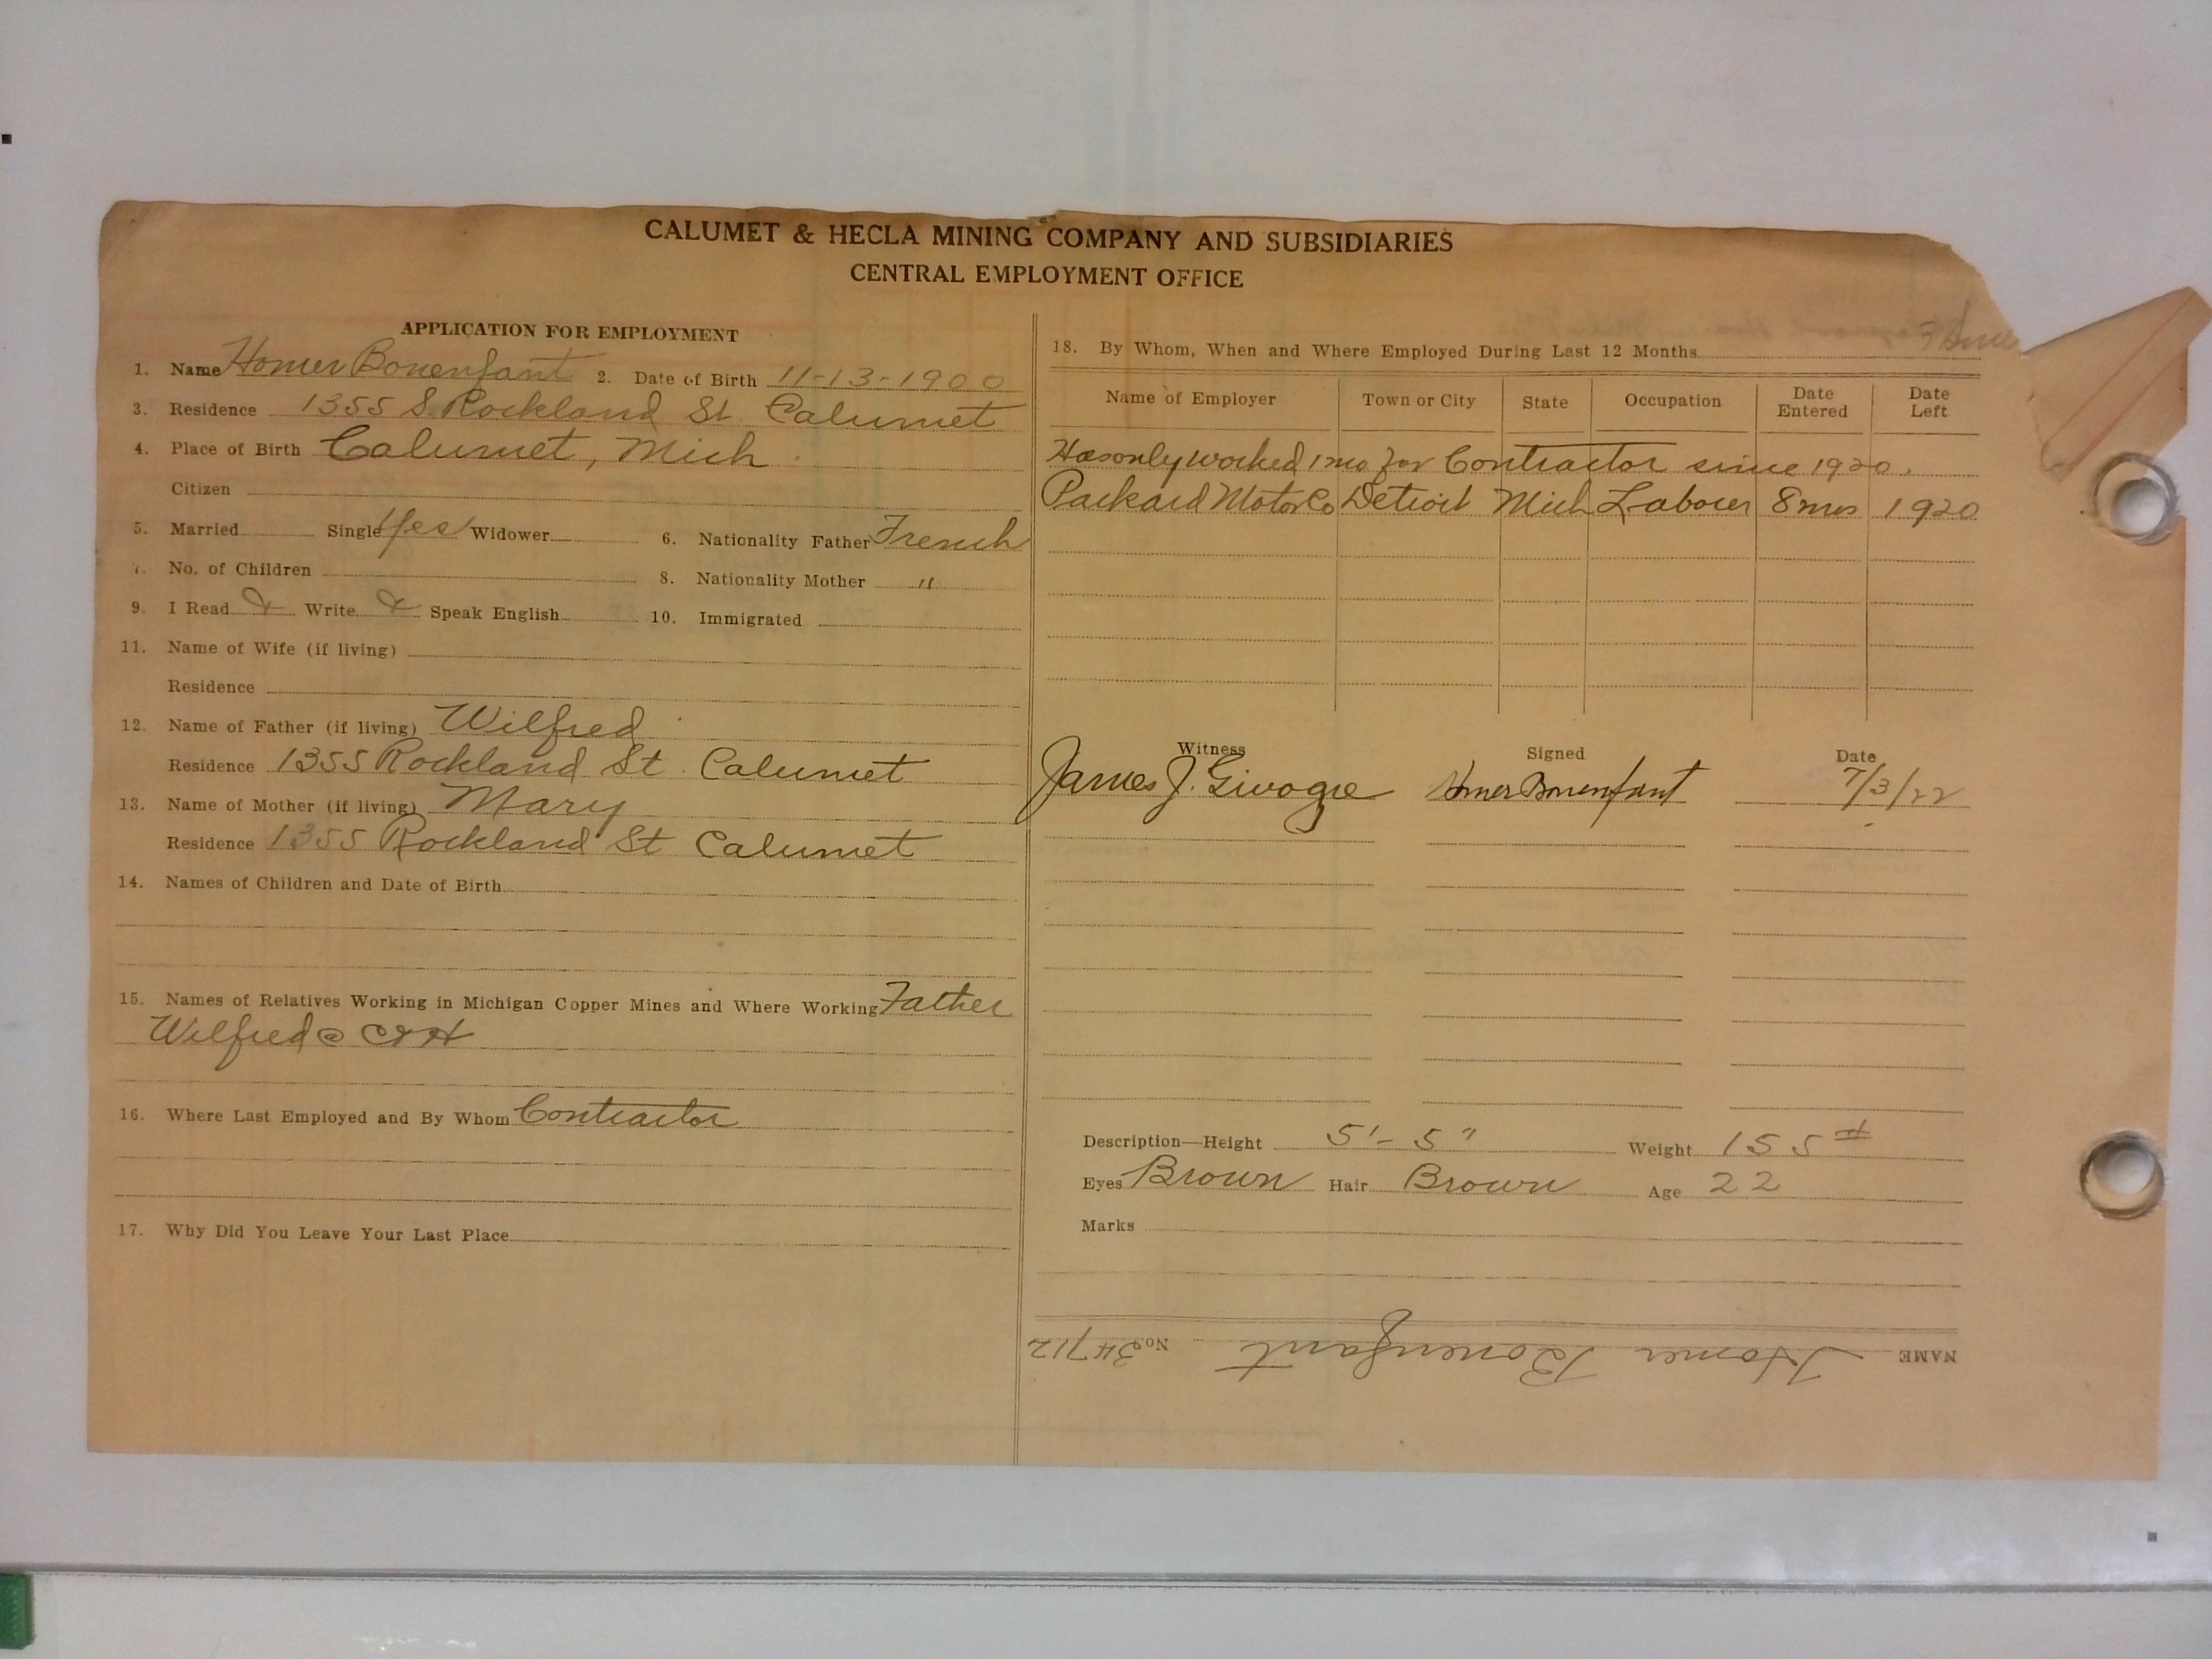 CALUMET & HECLA MINING COMPANY AND SUBSIDIARIES
CENTRAL EMPLOYMENT OFFICE
APPLICATION FOR EMPLOYMENT
1. Name Homer Bonenfant 2. Date of Birth 11-13-1900
3. Residence 1355 S. Rockland St. Calumet
4. Place of Birth Calumet, Mich
Citizen
5. Married Single Yes Widower 6. Nationality Father French
7. No. of Children 8. Nationality Mother "
9. I Read & Write & Speak English 10. Immigrated
11. Name of Wife (if living)
Residence
12. Name of Father (if living) Wilfred
Residence 1355 Rockland St. Calumet
13. Name of Mother (if living) Mary
Residence 1355 Rockland St Calumet
14. Names of Children and Date of Birth
15. Names of Relatives Working in Michigan Copper Mines and Where Working Father
Wilfred @ C&H
16. Where Last Employed and By Whom Contractor
17. Why Did You Leave Your Last Place
18. By Whom, When and Where Employed During Last 12 Months
Name of Employer Town or City State Occupation Date Entered Date Left
Has only worked 1 mo for Contractor since 1920.
Packard Motor Co Detroit Mich Laborer 8 mos 1920
Witness Signed Date
James J. Homer Bonenfant 7/3/22
Description—Height 5'-5" Weight 155#
Eyes Brown Hair Brown Age 22
Marks
NAME Homer Bonenfant No. 34712